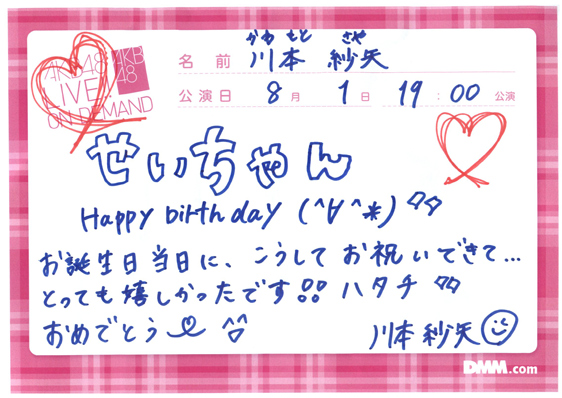 AKB48
LIVE
ON DEMAND
AKB
48
かわ もと さや
名前 川本 紗矢
公演日 8月 1日 19:00 公演
せいちゃん
Happy birthday (^∀^*)
お誕生日当日に、こうしてお祝いできて…
とっても嬉しかったです!! ハタチ
おめでとう
川本紗矢
DMM.com